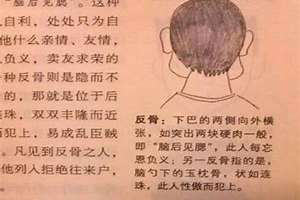 脑后见腮”。这种
自利，处处只为自
他什么亲情、友情，
负义，卖友求荣的
种反骨则是隐而不
的，那就是位于后
连珠，双双丰隆而近
而犯上，易成乱臣贼
凡见到反骨之人，
他列入拒绝往来户，
反骨：下巴的两侧向外横
张，如突出两块硬肉一般，
即“脑后见腮”，此人每忘
恩负义；另一反骨指的是，
脑勺下的玉枕骨，状如连
珠，此人性傲而犯上。